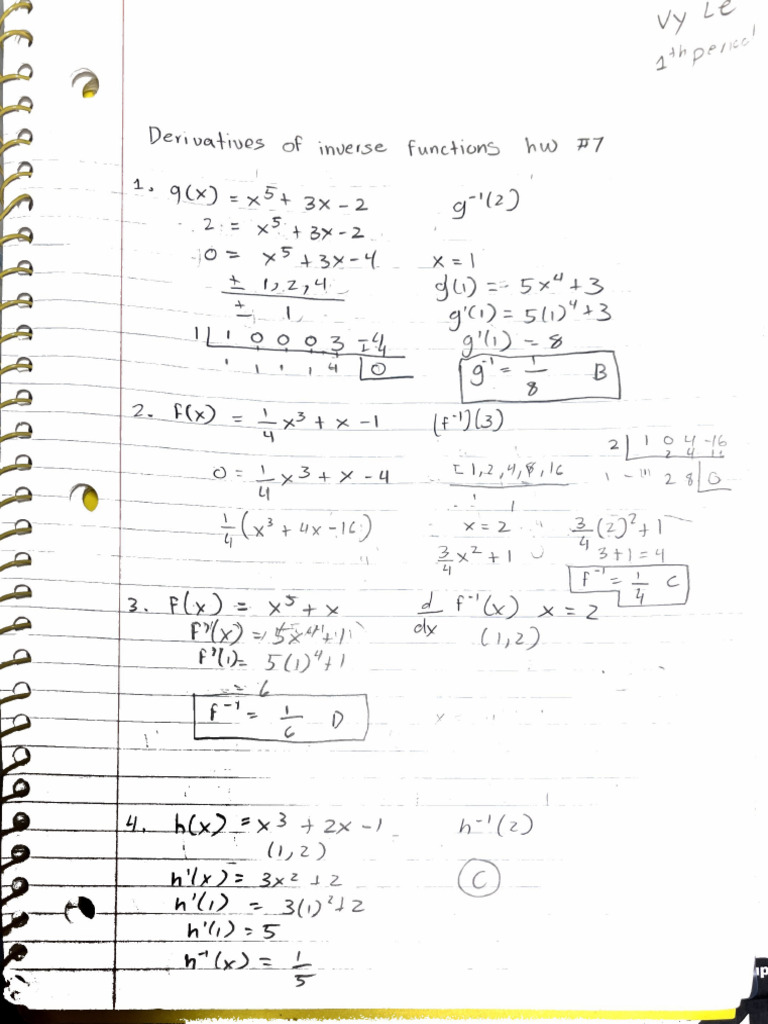 Vy Le
1th period
Derivatives of inverse functions hw #7
1. g(x) = x⁵ + 3x - 2    g⁻¹(2)
2 = x⁵ + 3x - 2
0 = x⁵ + 3x - 4    x = 1
± 1, 2, 4    g'(1) = 5x⁴ + 3
± 1    g'(1) = 5(1)⁴ + 3
1 | 1 0 0 0 3 -4    g'(1) = 8
1 1 1 4 | 0    g⁻¹ = 1/8    B
2. f(x) = 1/4 x³ + x - 1    (f⁻¹)(3)
2 | 1 0 4 -16
2 4
0 = 1/4 x³ + x - 4    ± 1, 2, 4, 8, 16    1 2 8 | 0
1
1/4 (x³ + 4x - 16)    x = 2    3/4 (2)² + 1
3/4 x² + 1    3 + 1 = 4
f⁻¹ = 1/4    C
3. f(x) = x⁵ + x    d/dx f⁻¹(x)    x = 2
f'(x) = 5x⁴ + 1    (1, 2)
f'(1) = 5(1)⁴ + 1
= 6
f⁻¹ = 1/6    D
4. h(x) = x³ + 2x - 1    h⁻¹(2)
(1, 2)
h'(x) = 3x² + 2    C
h'(1) = 3(1)² + 2
h'(1) = 5
h⁻¹(x) = 1/5